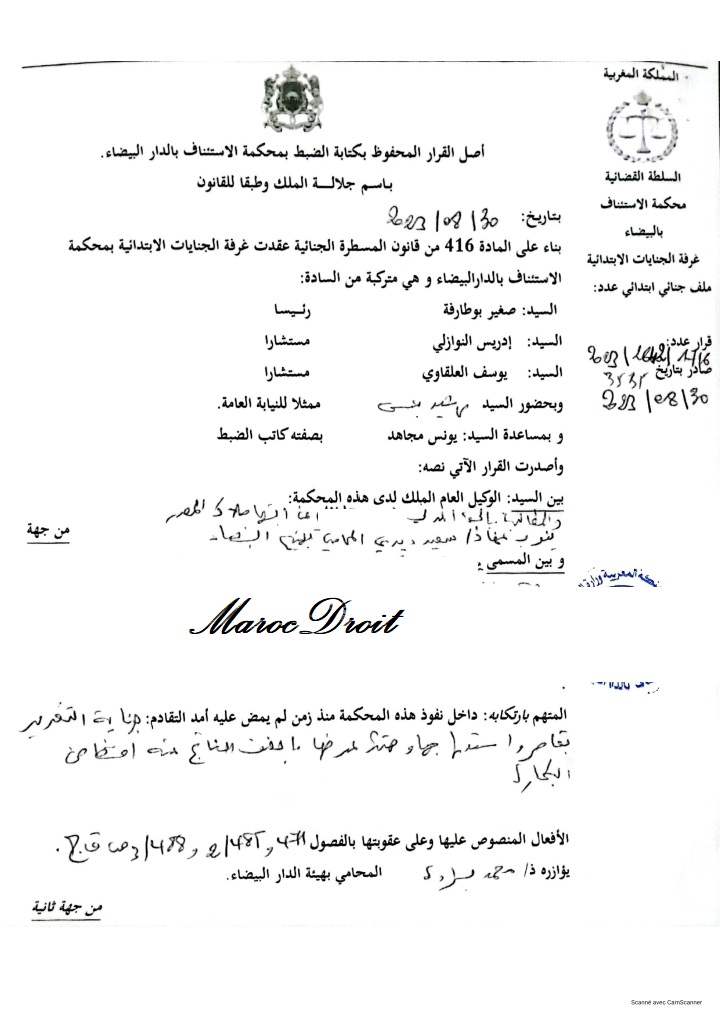 المملكة المغربية
السلطة القضائية
محكمة الاستئناف
بالبيضاء
غرفة الجنايات الابتدائية
ملف جنائي ابتدائي عدد:
قرار عدد:
صادر بتاريخ
2023/08/30
أصل القرار المحفوظ بكتابة الضبط بمحكمة الاستئناف بالدار البيضاء.
باسم جلالة الملك وطبقا للقانون
بتاريخ: 2023/08/30
بناء على المادة 416 من قانون المسطرة الجنائية عقدت غرفة الجنايات الابتدائية بمحكمة
الاستئناف بالدارالبيضاء و هي متركبة من السادة:
السيد: صغير بوطارفة رئيسا
السيد: إدريس النوازلي مستشارا
السيد: يوسف العلقاوي مستشارا
وبحضور السيد ممثلا للنيابة العامة.
و بمساعدة السيد: يونس مجاهد بصفته كاتب الضبط
وأصدرت القرار الآتي نصه:
بين السيد: الوكيل العام الملك لدى هذه المحكمة:
من جهة
و بين المسمى:
Maroc Droit
المتهم بارتكابه: داخل نفوذ هذه المحكمة منذ زمن لم يمض عليه أمد التقادم: جناية التغرير
بقاصر و استدراجها و هتك عرضها بالعنف الناتج عنه افتضاض
البكارة
الأفعال المنصوص عليها وعلى عقوبتها بالفصول 471 و 485/2 و 488/3
يؤازره ذ/ محمد المحامي بهيئة الدار البيضاء.
من جهة ثانية
Scanné avec CamScanner